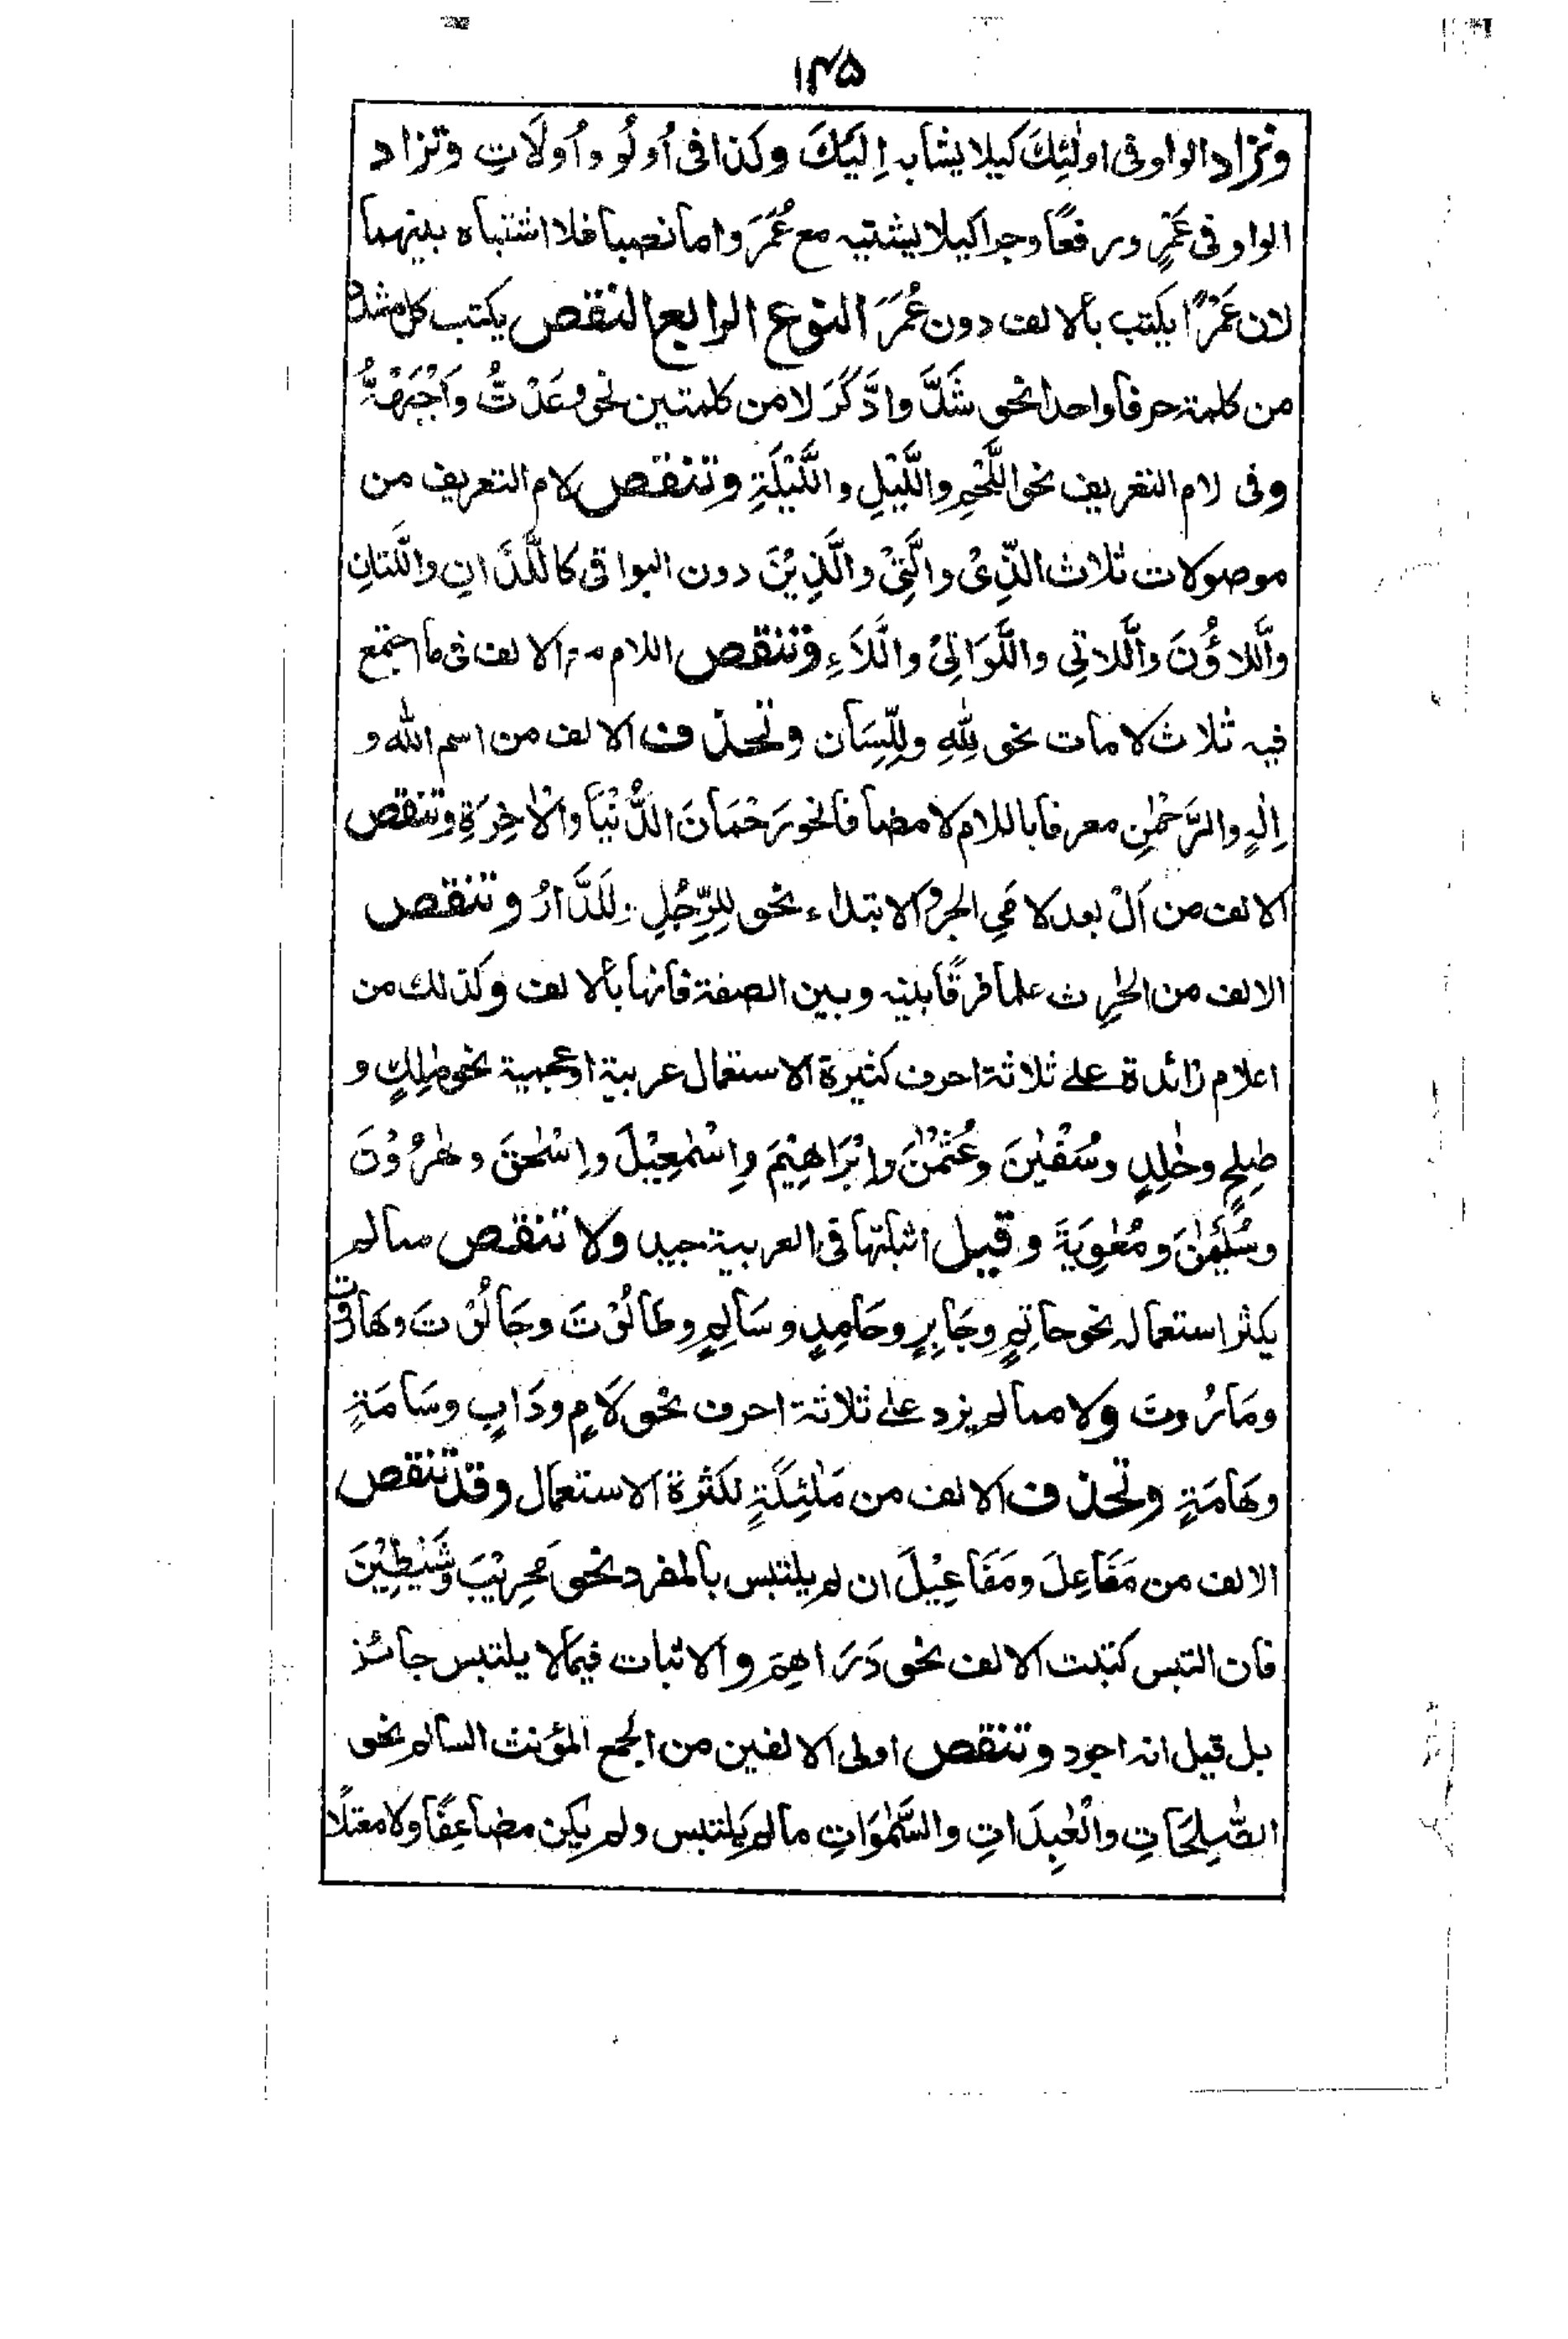 ۱۴۵
وتزاد الواو فی اولٰئِكَ كيلا يشابہ اِلَيْكَ وكذا فی اُولُو واُولَاتِ وتزاد
الواو فی عَمْرٍ ورفعًا وجرا كيلا يشتبہ مع عُمَرَ واما نصبا فلا اشتباه بينهما
لان عَمْرًا يكتب بالالف دون عُمَرَ النوع الرابع النقص يكتب كل مشدد
من كلمة حرفا واحدا نحو شَدَّ وادَّكَرَ لا من كلمتين نحو وعَدْتُّ وَاَجْبَهْهُّ
وفی لام التعريف نحو اللَّحْمِ واللَّيْلِ واللَّيْلَةِ وتنقص لام التعريف من
موصولات ثلاث الَّذِیْ والَّتِیْ والَّذِيْنَ دون البواقی كاللَّذَانِ واللَّتَانِ
واللَّاؤُنَ واللَّاتِی واللَّوَاتِیْ واللَّاَءِ وتنقص اللام مع الالف فی ما اجتمع
فيہ ثلاث لامات نحو لِلّٰهِ ولِلِّسَانِ وتحذف الالف من اسم الله و
اِلٰهٍ والرَّحْمٰنِ معرفا باللام لا مضافا نحو رَحْمَانَ الدُّنْيَا وَالْاٰخِرَةِ وتنقص
الالف من اَلْ بعد لامَیِ الجر والابتداء نحو لِلرَّجُلِ لَلدَّارُ وتنقص
الالف من الحٰرِث علما فرقًا بينہ وبين الصفة فانها بالالف وكذلك من
اعلام زائدة علے ثلاثة احرف كثيرة الاستعمال عربية او عجمية نحو مٰلِكٍ و
صٰلِحٍ وخٰلِدٍ وسُفْيٰنَ وعُثْمٰنَ وَاِبْرَاهِيْمَ وَاِسْمٰعِيْلَ وَاِسْحٰقَ وهٰرُوْنَ
وسُلَيْمٰنَ ومُعٰوِيَةَ وقيل اثباتها فی العربية جيد ولا تنقص ممالم
يكثر استعمالہ نحو حاتِمٍ وجَابِرٍ وحَامِدٍ وسَالِمٍ وطَالُوْتَ وجَالُوْتَ وهَارُوْتَ
ومَارُوتَ ولا ممالم يزد علے ثلاثة احرف نحو لَامٍ ودَابٍ وسَامَةٍ
وهَامَةٍ وتحذف الالف من مَلٰئِكَةٍ لكثرة الاستعمال وقد تنقص
الالف من مَفَاعِلَ ومَفَاعِيْلَ ان لم يلتبس بالمفرد نحو مَحٰرِيْبَ وشَيٰطِيْنَ
فان التبس كتبت الالف نحو دَرَاهِمَ والاثبات فيما لا يلتبس جائز
بل قيل انہ اجود وتنقص اولی الالفين من الجمع المؤنث السالم نحو
الصّٰلِحَاتِ والْعٰبِدَاتِ والسَّمٰوَاتِ مالم يلتبس ولم يكن مضاعفًا ولا معتلًا